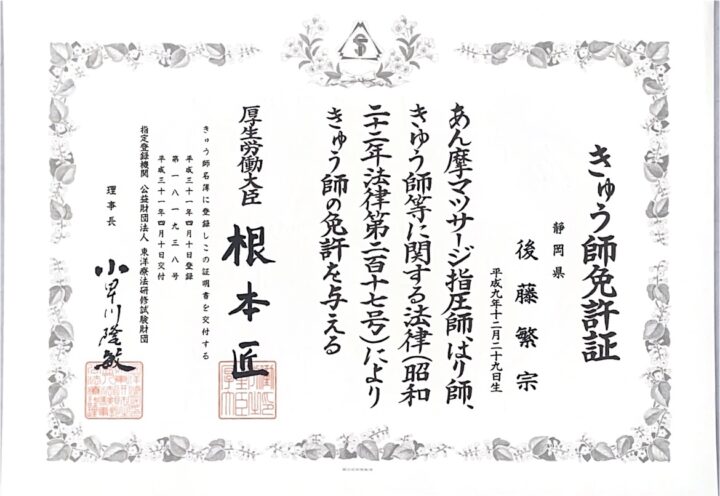 きゅう師免許証
静岡県
後藤繁宗
平成九年十二月二十九日生
あん摩マツサージ指圧師、はり師、
きゆう師等に関する法律(昭和
二十二年法律第二百十七号)により
きゅう師の免許を与える
厚生労働大臣 根本匠
きゅう師名簿に登録しこの証明書を交付する
平成三十一年四月十日登録
第一八一九三八号
平成三十一年四月十日交付
指定登録機関 公益財団法人 東洋療法研修試験財団
理事長 小早川隆敏